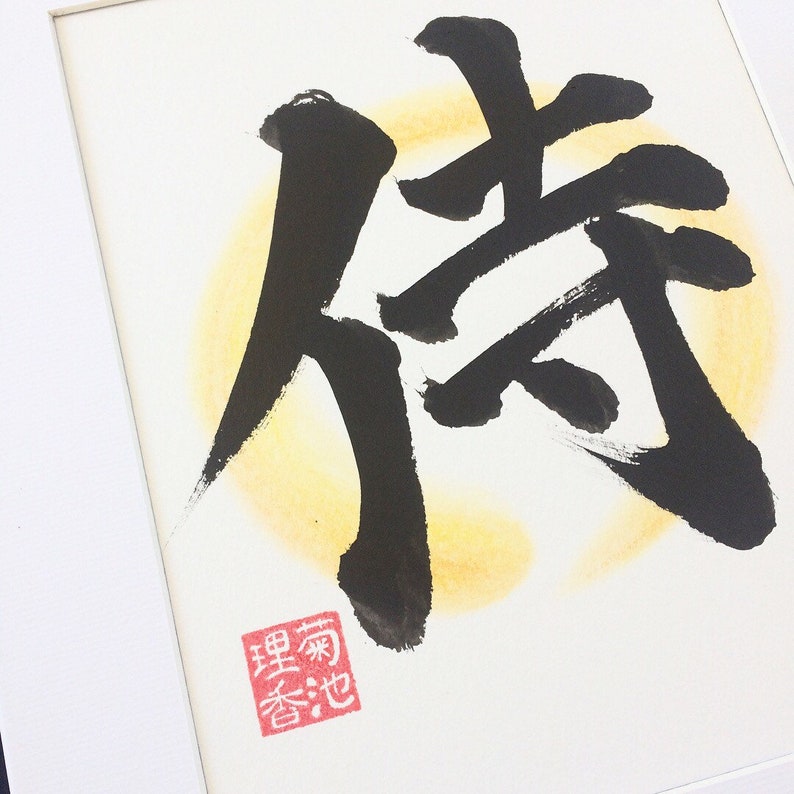 侍
菊池
理香